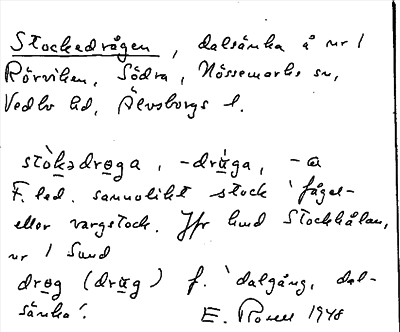 Stockedrågen, dalsänka å nr 1
Rörviken, Södra, Nössemarks sn,
Vedbo hd, Älvsborgs l.
stòkədrøga, -dràga, -a
F. led. sannolikt stock 'fågel-
eller vargstock. Jfr hund Stockhålan,
nr 1 Sund
drøg (dråg) f. 'dalgång, dal-
sänka'. E. 1948